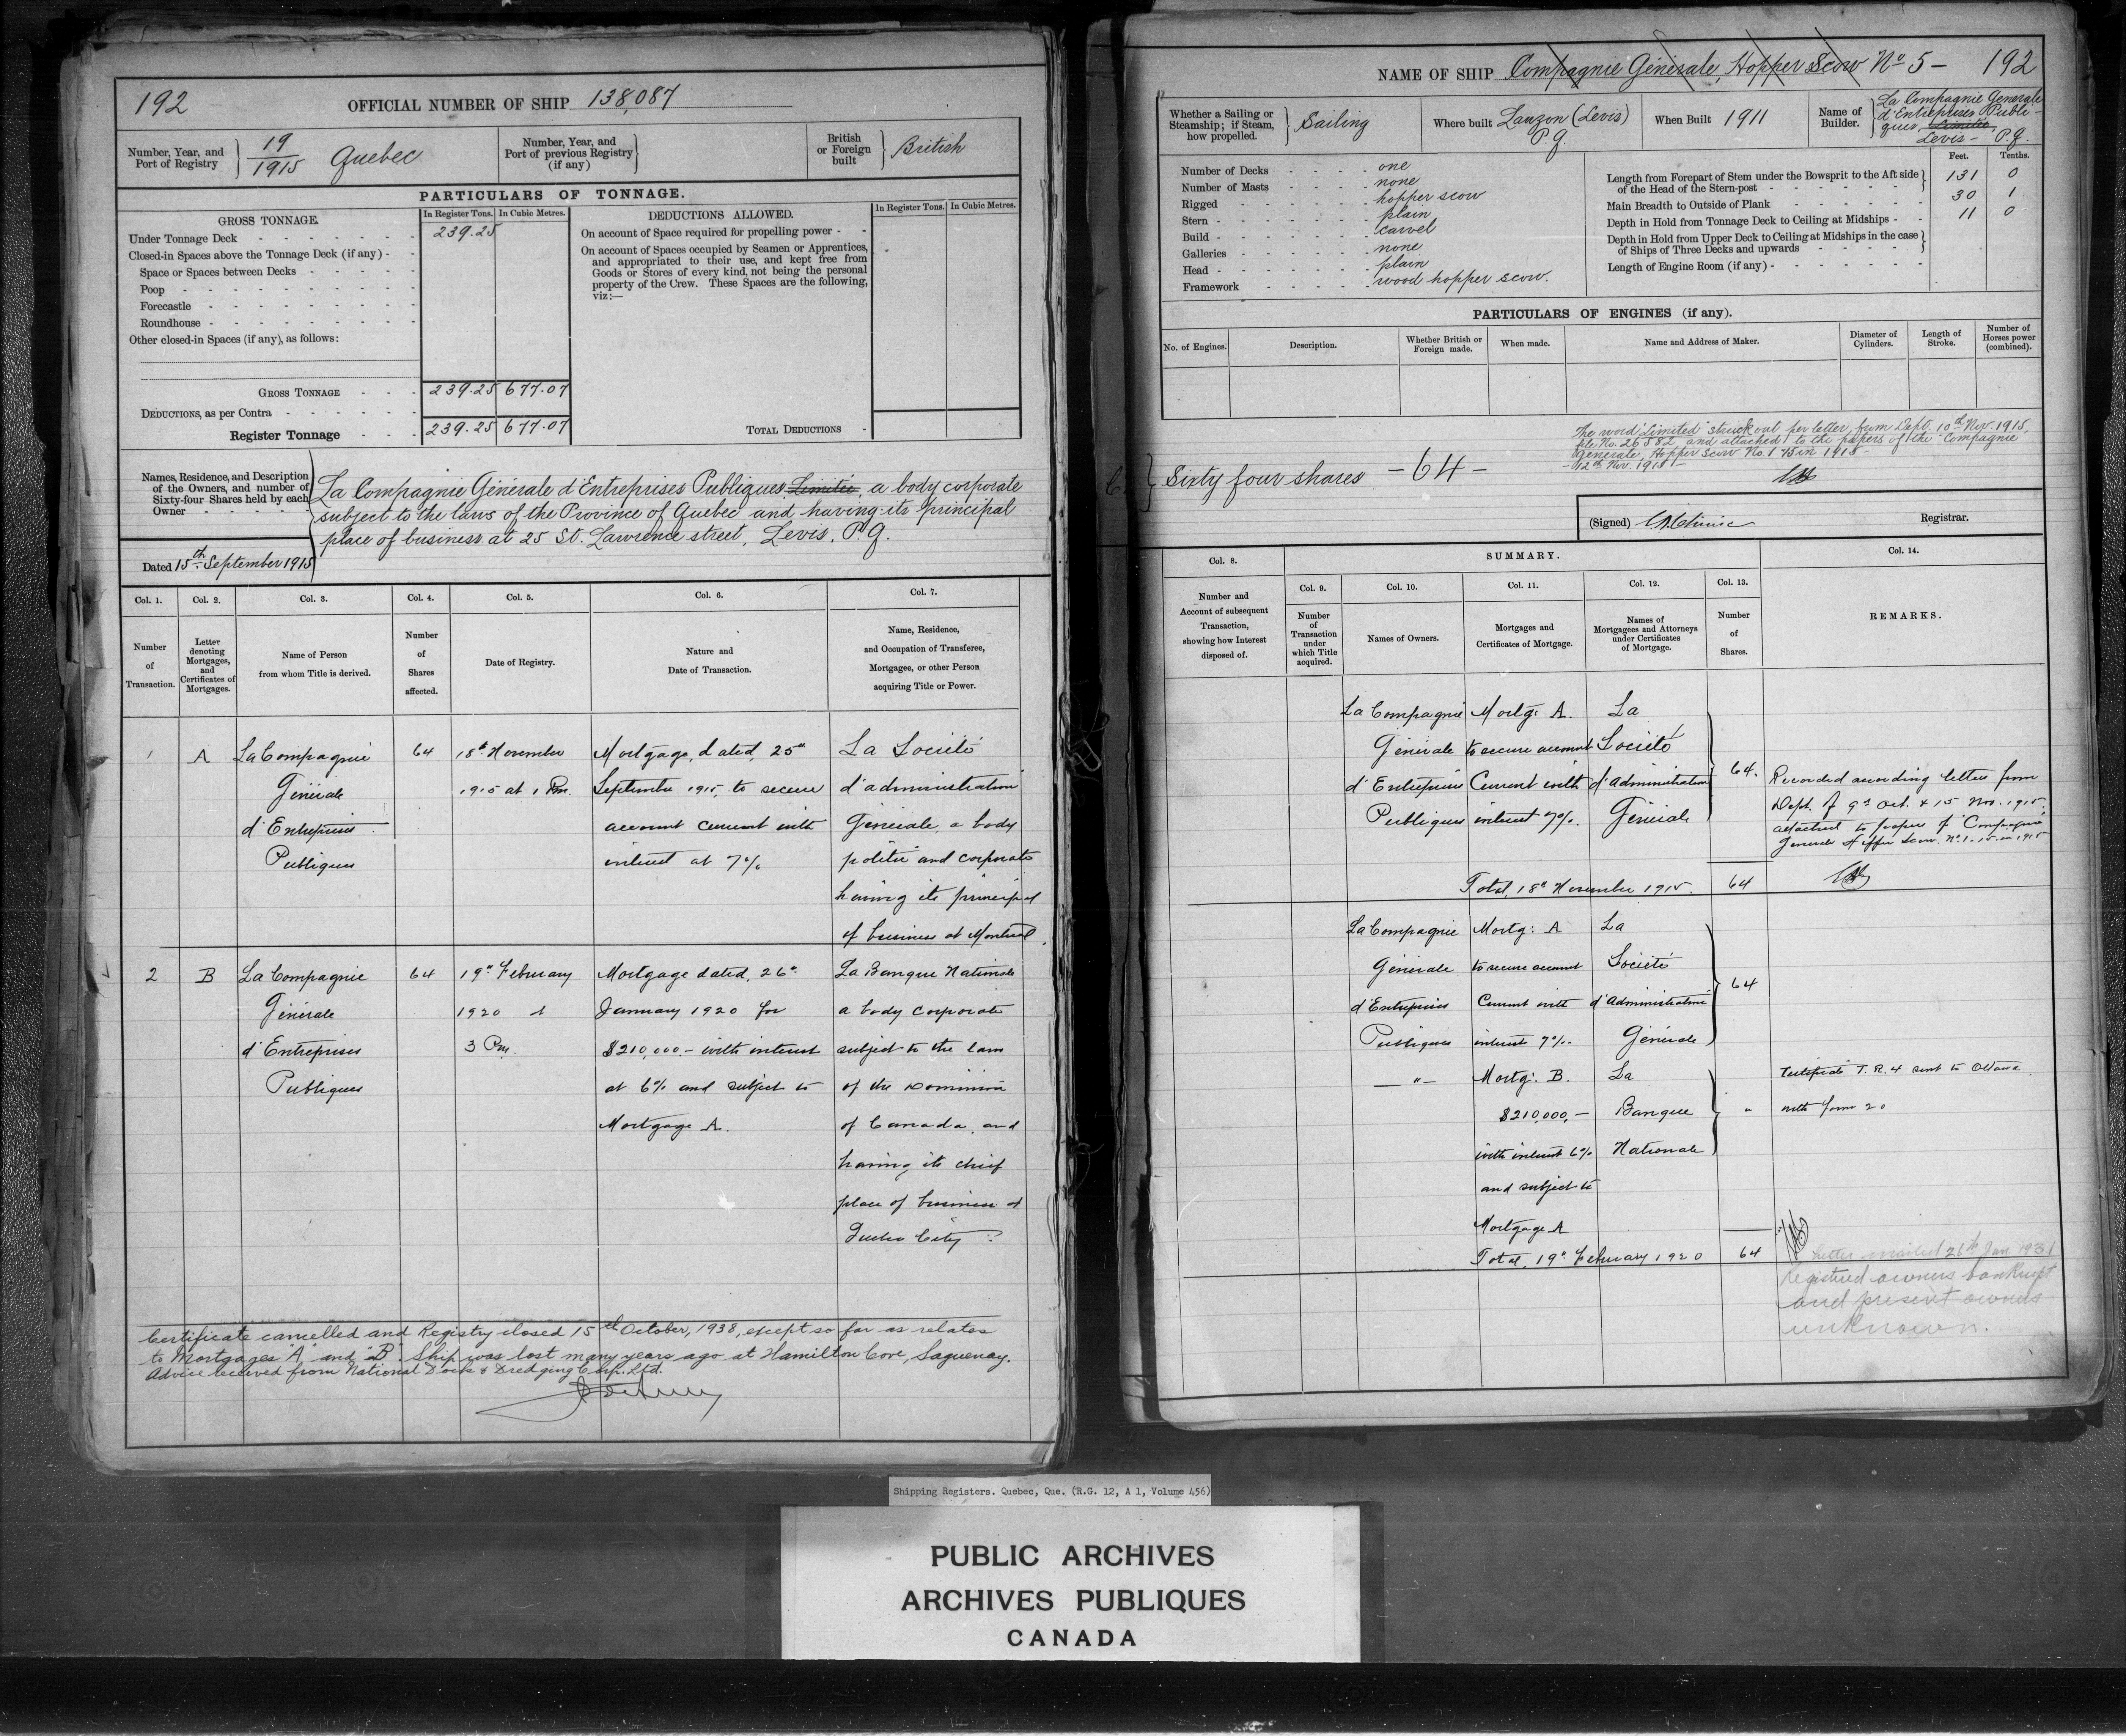 192
OFFICIAL NUMBER OF SHIP 138,087
Number, Year, and Port of Registry } 19/1915 Quebec
Number, Year, and Port of previous Registry (if any) }
British or Foreign built } British
PARTICULARS OF TONNAGE.
GROSS TONNAGE.
In Register Tons.
In Cubic Metres.
DEDUCTIONS ALLOWED.
In Register Tons.
In Cubic Metres.
Under Tonnage Deck 239.25
Closed-in Spaces above the Tonnage Deck (if any)
Space or Spaces between Decks
Poop
Forecastle
Roundhouse
Other closed-in Spaces (if any), as follows:
GROSS TONNAGE 239.25 677.07
DEDUCTIONS, as per Contra
Register Tonnage 239.25 677.07
On account of Space required for propelling power
On account of Spaces occupied by Seamen or Apprentices,
and appropriated to their use, and kept free from
Goods or Stores of every kind, not being the personal
property of the Crew. These Spaces are the following,
viz:—
TOTAL DEDUCTIONS
Names, Residence, and Description
of the Owners, and number of
Sixty-four Shares held by each
Owner
La Compagnie Générale d'Entreprises Publiques, Limitée, a body corporate
subject to the laws of the Province of Quebec and having its principal
place of business at 25 St. Lawrence street, Levis, P.Q.
Dated 15th September 1915
Col. 1.
Col. 2.
Col. 3.
Col. 4.
Col. 5.
Col. 6.
Col. 7.
Number of Transaction.
Letter denoting Mortgages, and Certificates of Mortgages.
Name of Person from whom Title is derived.
Number of Shares affected.
Date of Registry.
Nature and Date of Transaction.
Name, Residence, and Occupation of Transferee, Mortgagee, or other Person acquiring Title or Power.
1 A La Compagnie 64 18th November Mortgage, dated, 25th La Société
Générale 1915 at 1 Pm. September 1915, to secure d'administration
d'Entreprises account current with Générale a body
Publiques interest at 7% politic and corporate
having its principal
of business at Montreal.
2 B La Compagnie 64 19th February Mortgage dated, 26th La Banque Nationale
Générale 1920 at January 1920 for a body corporate
d'Entreprises 3 Pm. $210,000.- with interest subject to the laws
Publiques at 6% and subject to of the Dominion
Mortgage A. of Canada, and
having its chief
place of business at
Quebec City
Certificate cancelled and Registry closed 15th October, 1938, except so far as relates
to Mortgages "A" and "B". Ship was lost many years ago at Hamilton Cove, Saguenay.
Advice received from National Dock & Dredging Corp. Ltd.
NAME OF SHIP Compagnie Générale, Hopper Scow No 5 - 192
Whether a Sailing or Steamship; if Steam, how propelled. } Sailing
Where built Lauzon (Levis) P.Q.
When Built 1911
Name of Builder. } La Compagnie Generale
d'Entreprises Publi-
ques, Limitée,
Levis - P.Q.
Number of Decks one
Number of Masts none
Rigged hopper scow
Stern plain
Build carvel
Galleries none
Head plain
Framework wood hopper scow.
Feet. Tenths.
Length from Forepart of Stem under the Bowsprit to the Aft side of the Head of the Stern-post 131 0
Main Breadth to Outside of Plank 30 1
Depth in Hold from Tonnage Deck to Ceiling at Midships 11 0
Depth in Hold from Upper Deck to Ceiling at Midships in the case of Ships of Three Decks and upwards
Length of Engine Room (if any)
PARTICULARS OF ENGINES (if any).
No. of Engines.
Description.
Whether British or Foreign made.
When made.
Name and Address of Maker.
Diameter of Cylinders.
Length of Stroke.
Number of Horses power (combined).
The word "Limited" struck out per letter from Dept. 10th Nov. 1915,
file No. 26582 and attached to the papers of the "Compagnie
Générale, Hopper Scow No. 1" 15 in 1915 -
- 12th Nov. 1915 -
Sixty four shares - 64 -
(Signed) Registrar.
Col. 8.
SUMMARY.
Col. 14.
Col. 9.
Col. 10.
Col. 11.
Col. 12.
Col. 13.
Number and Account of subsequent Transaction, showing how Interest disposed of.
Number of Transaction under which Title acquired.
Names of Owners.
Mortgages and Certificates of Mortgage.
Names of Mortgagees and Attorneys under Certificates of Mortgage.
Number of Shares.
REMARKS.
La Compagnie Mortg: A. La
Générale to secure account Société
d'Entreprises Current with d'Administration 64.
Publiques interest 7%. Générale
Recorded according letters from
Dept. of 9th Oct. & 15 Nov. 1915,
attached to papers of "Compagnie
Generale Hopper Scow. No. 1 - 15 in 1915
Total, 18th November 1915. 64
La Compagnie Mortg: A La
Générale to secure account Société
d'Entreprises Current with d'Administration 64
Publiques interest 7%- Générale
-"- Mortg: B. La
$210,000,- Banque "
with interest 6% Nationale
and subject to
Mortgage A
Certificate T.R.4 sent to Ottawa
with form 20
Total, 19th February 1920 64
Letter mailed 26th Jan 1931
Registered owners bankrupt
and present owners
unknown.
Shipping Registers. Quebec, Que. (R.G. 12, A 1, Volume 456)
PUBLIC ARCHIVES
ARCHIVES PUBLIQUES
CANADA